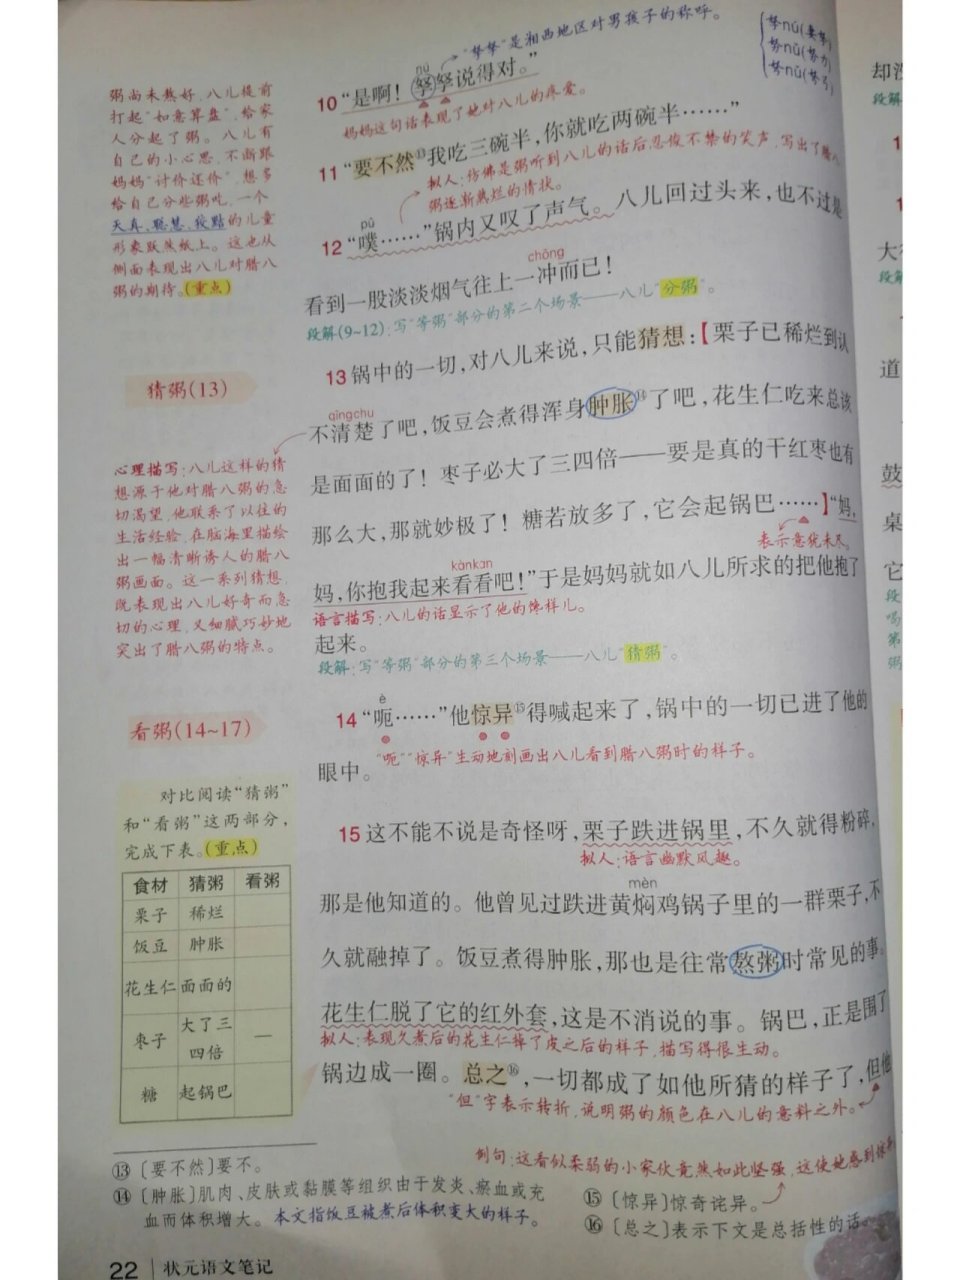 "孥孥"是湘西地区对男孩子的称呼。
孥nú(妻孥)
努nǔ(努力)
弩nǔ(弩弓)
nú
10 "是啊！孥孥说得对。"
妈妈这句话表现了她对八儿的疼爱。
11 "要不然⑬我吃三碗半，你就吃两碗半……"
拟人：仿佛是粥听到八儿的话后忍俊不禁的笑声，写出了腊八
粥逐渐熟烂的情状。
pū
12 "噗……"锅内又叹了声气。八儿回过头来，也不过是
chōng
看到一股淡淡烟气往上一冲而已！
段解(9~12)：写"等粥"部分的第二个场景——八儿"分粥"。
粥尚未熬好，八儿提前
打起"如意算盘"，给家
人分起了粥。八儿有
自己的小心思，不断跟
妈妈"讨价还价"，想多
给自己分些粥吃，一个
天真、聪慧、狡黠的儿童
形象跃然纸上。这也从
侧面表现出八儿对腊八
粥的期待。(重点)
猜粥(13)
13 锅中的一切，对八儿来说，只能猜想：【栗子已稀烂到认
qīngchu
不清楚了吧，饭豆会煮得浑身肿胀⑭了吧，花生仁吃来总该
是面面的了！枣子必大了三四倍——要是真的干红枣也有
那么大，那就妙极了！糖若放多了，它会起锅巴……】"妈，
表示意犹未尽。
kànkan
妈，你抱我起来看看吧！"于是妈妈就如八儿所求的把他抱了
语言描写：八儿的话显示了他的馋样儿。
起来。
段解：写"等粥"部分的第三个场景——八儿"猜粥"。
心理描写：八儿这样的猜
想源于他对腊八粥的急
切渴望，他联系了以往的
生活经验，在脑海里描绘
出一幅清晰诱人的腊八
粥画面。这一系列猜想，
既表现出八儿好奇而急
切的心理，又细腻巧妙地
突出了腊八粥的特点。
看粥(14~17)
è
14 "呃……"他惊异⑮得喊起来了，锅中的一切已进了他的
"呃""惊异"生动地刻画出八儿看到腊八粥时的样子。
眼中。
15 这不能不说是奇怪呀，栗子跌进锅里，不久就得粉碎，
拟人：语言幽默风趣。
mèn
那是他知道的。他曾见过跌进黄焖鸡锅子里的一群栗子，不
久就融掉了。饭豆煮得肿胀，那也是往常熬粥时常见的事。
花生仁脱了它的红外套，这是不消说的事。锅巴，正是围了
拟人：表现久煮后的花生仁掉了皮之后的样子，描写得很生动。
锅边成一圈。总之⑯，一切都成了如他所猜的样子了，但他
"但"字表示转折，说明粥的颜色在八儿的意料之外。
对比阅读"猜粥"
和"看粥"这两部分，
完成下表。(重点)
食材 猜粥 看粥
栗子 稀烂
饭豆 肿胀
花生仁 面面的
枣子 大了三四倍 —
糖 起锅巴
例句：这看似柔弱的小家伙竟然如此坚强，这使她感到惊异
⑬〔要不然〕要不。
⑭〔肿胀〕肌肉、皮肤或黏膜等组织由于发炎、瘀血或充
血而体积增大。本文指饭豆被煮后体积变大的样子。
⑮〔惊异〕惊奇诧异。
⑯〔总之〕表示下文是总括性的话。
22 状元语文笔记
却没
段解
大
段解
道
鼓
桌
它
段
吗
第
粥